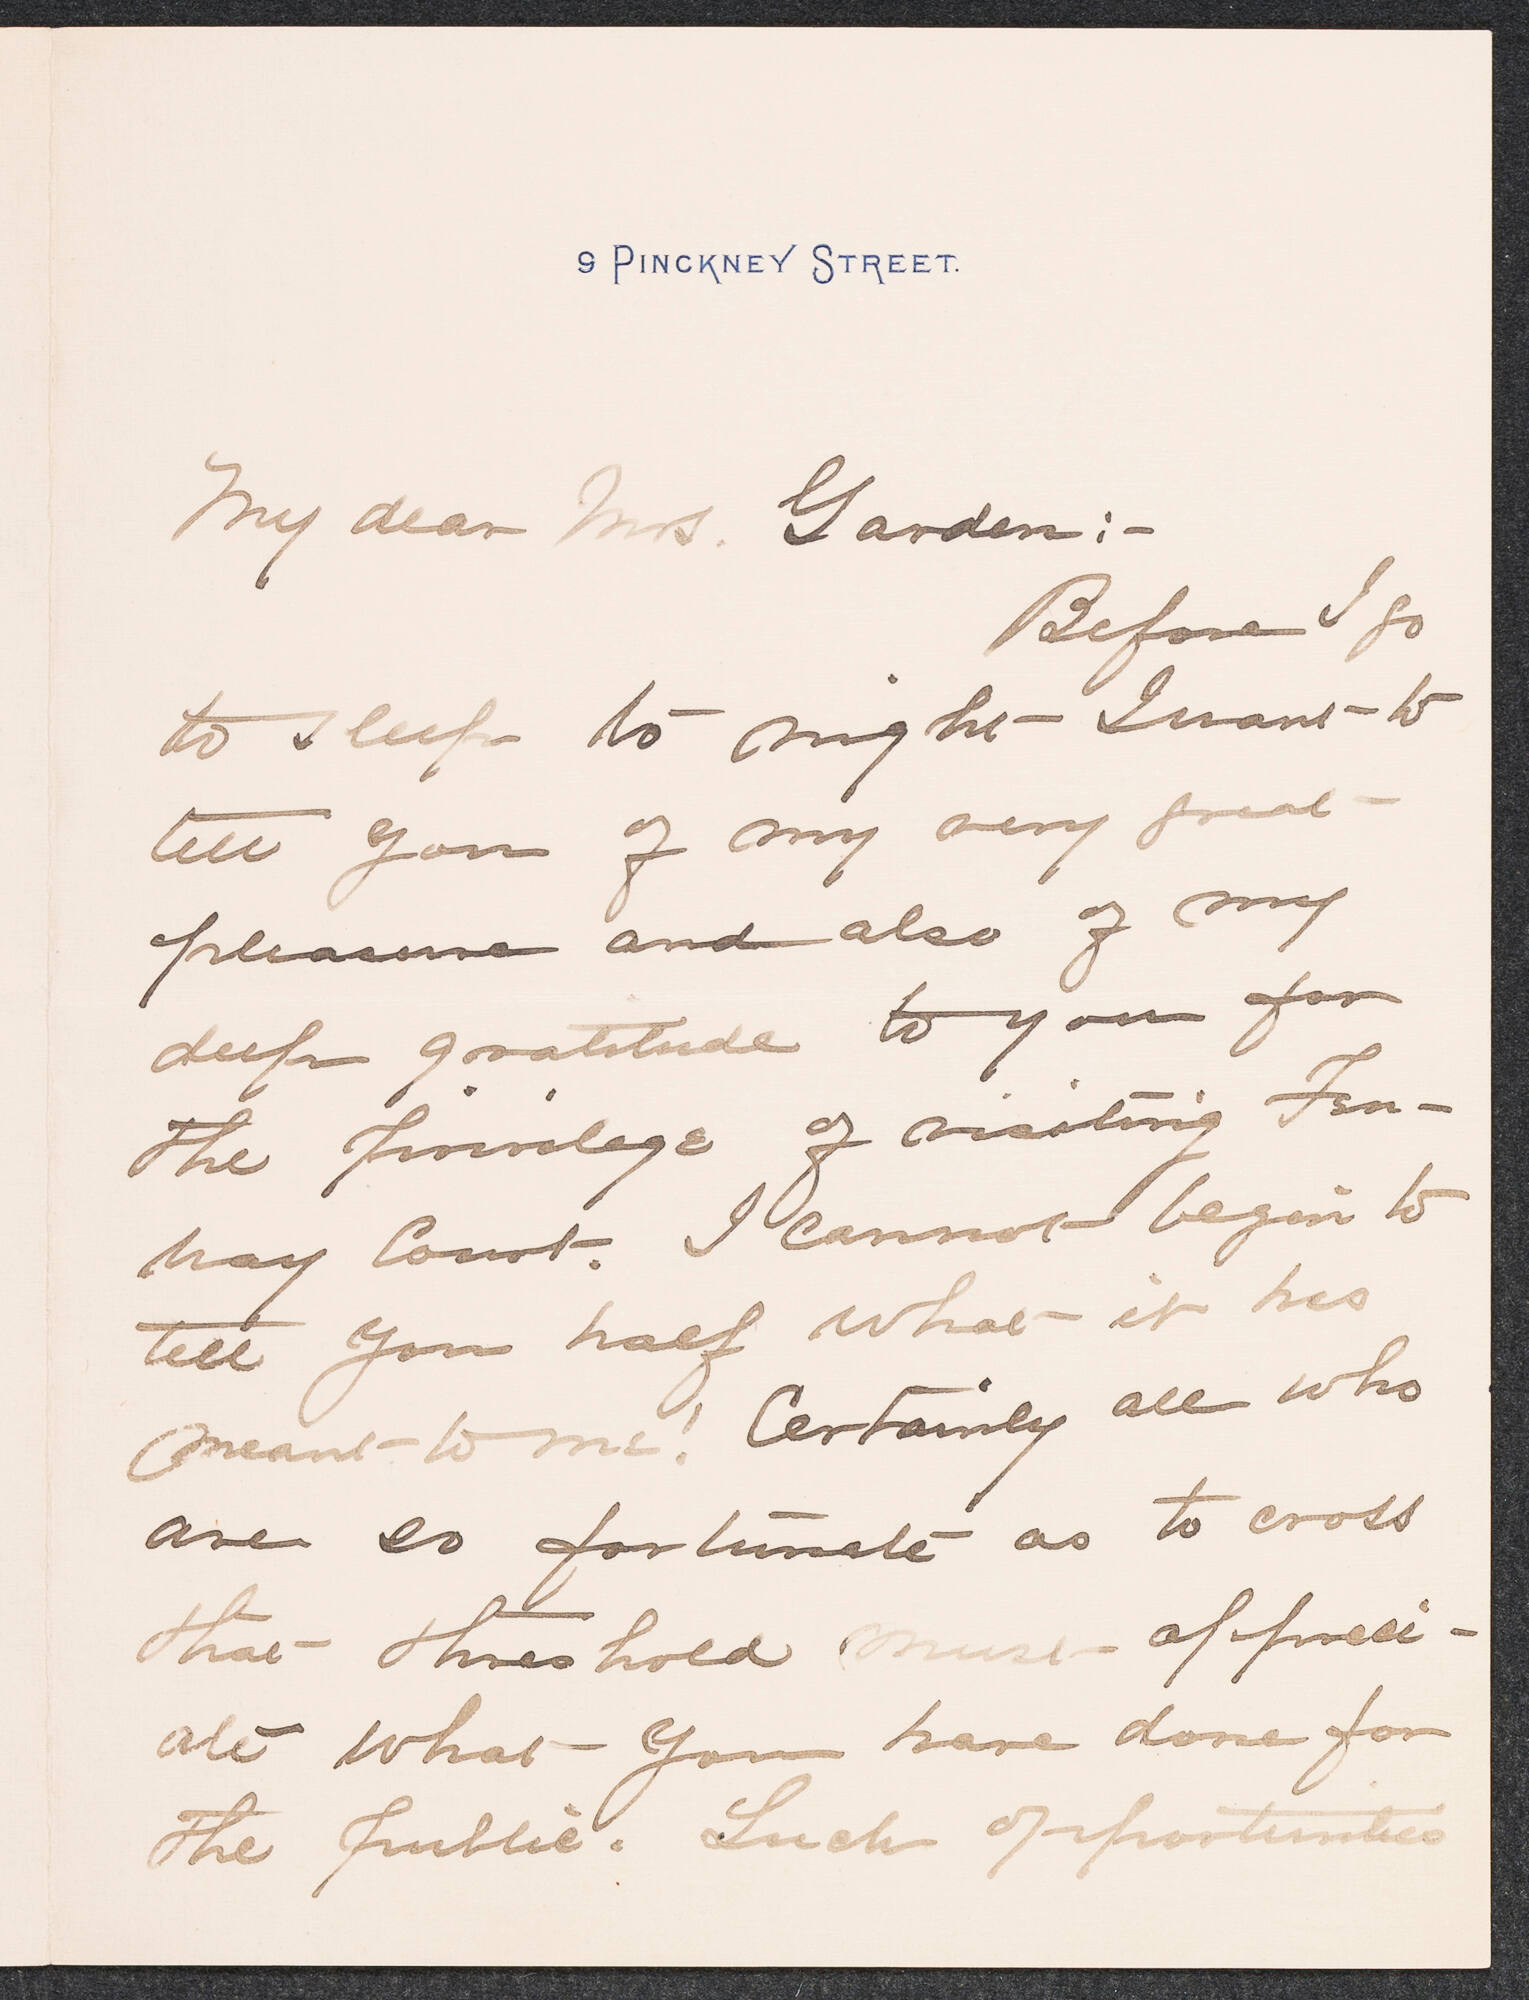 9 PINCKNEY STREET.
My dear Mrs. Garden:-
Before I go
to sleep to night I want to
tell you of my very great
pleasure and also of my
deep gratitude to you for
the privilege of visiting Fen-
way Court. I cannot begin to
tell you half what it has
meant to me! Certainly all who
are so fortunate as to cross
that threshold must appreci-
ate what you have done for
the public. Such opportunities